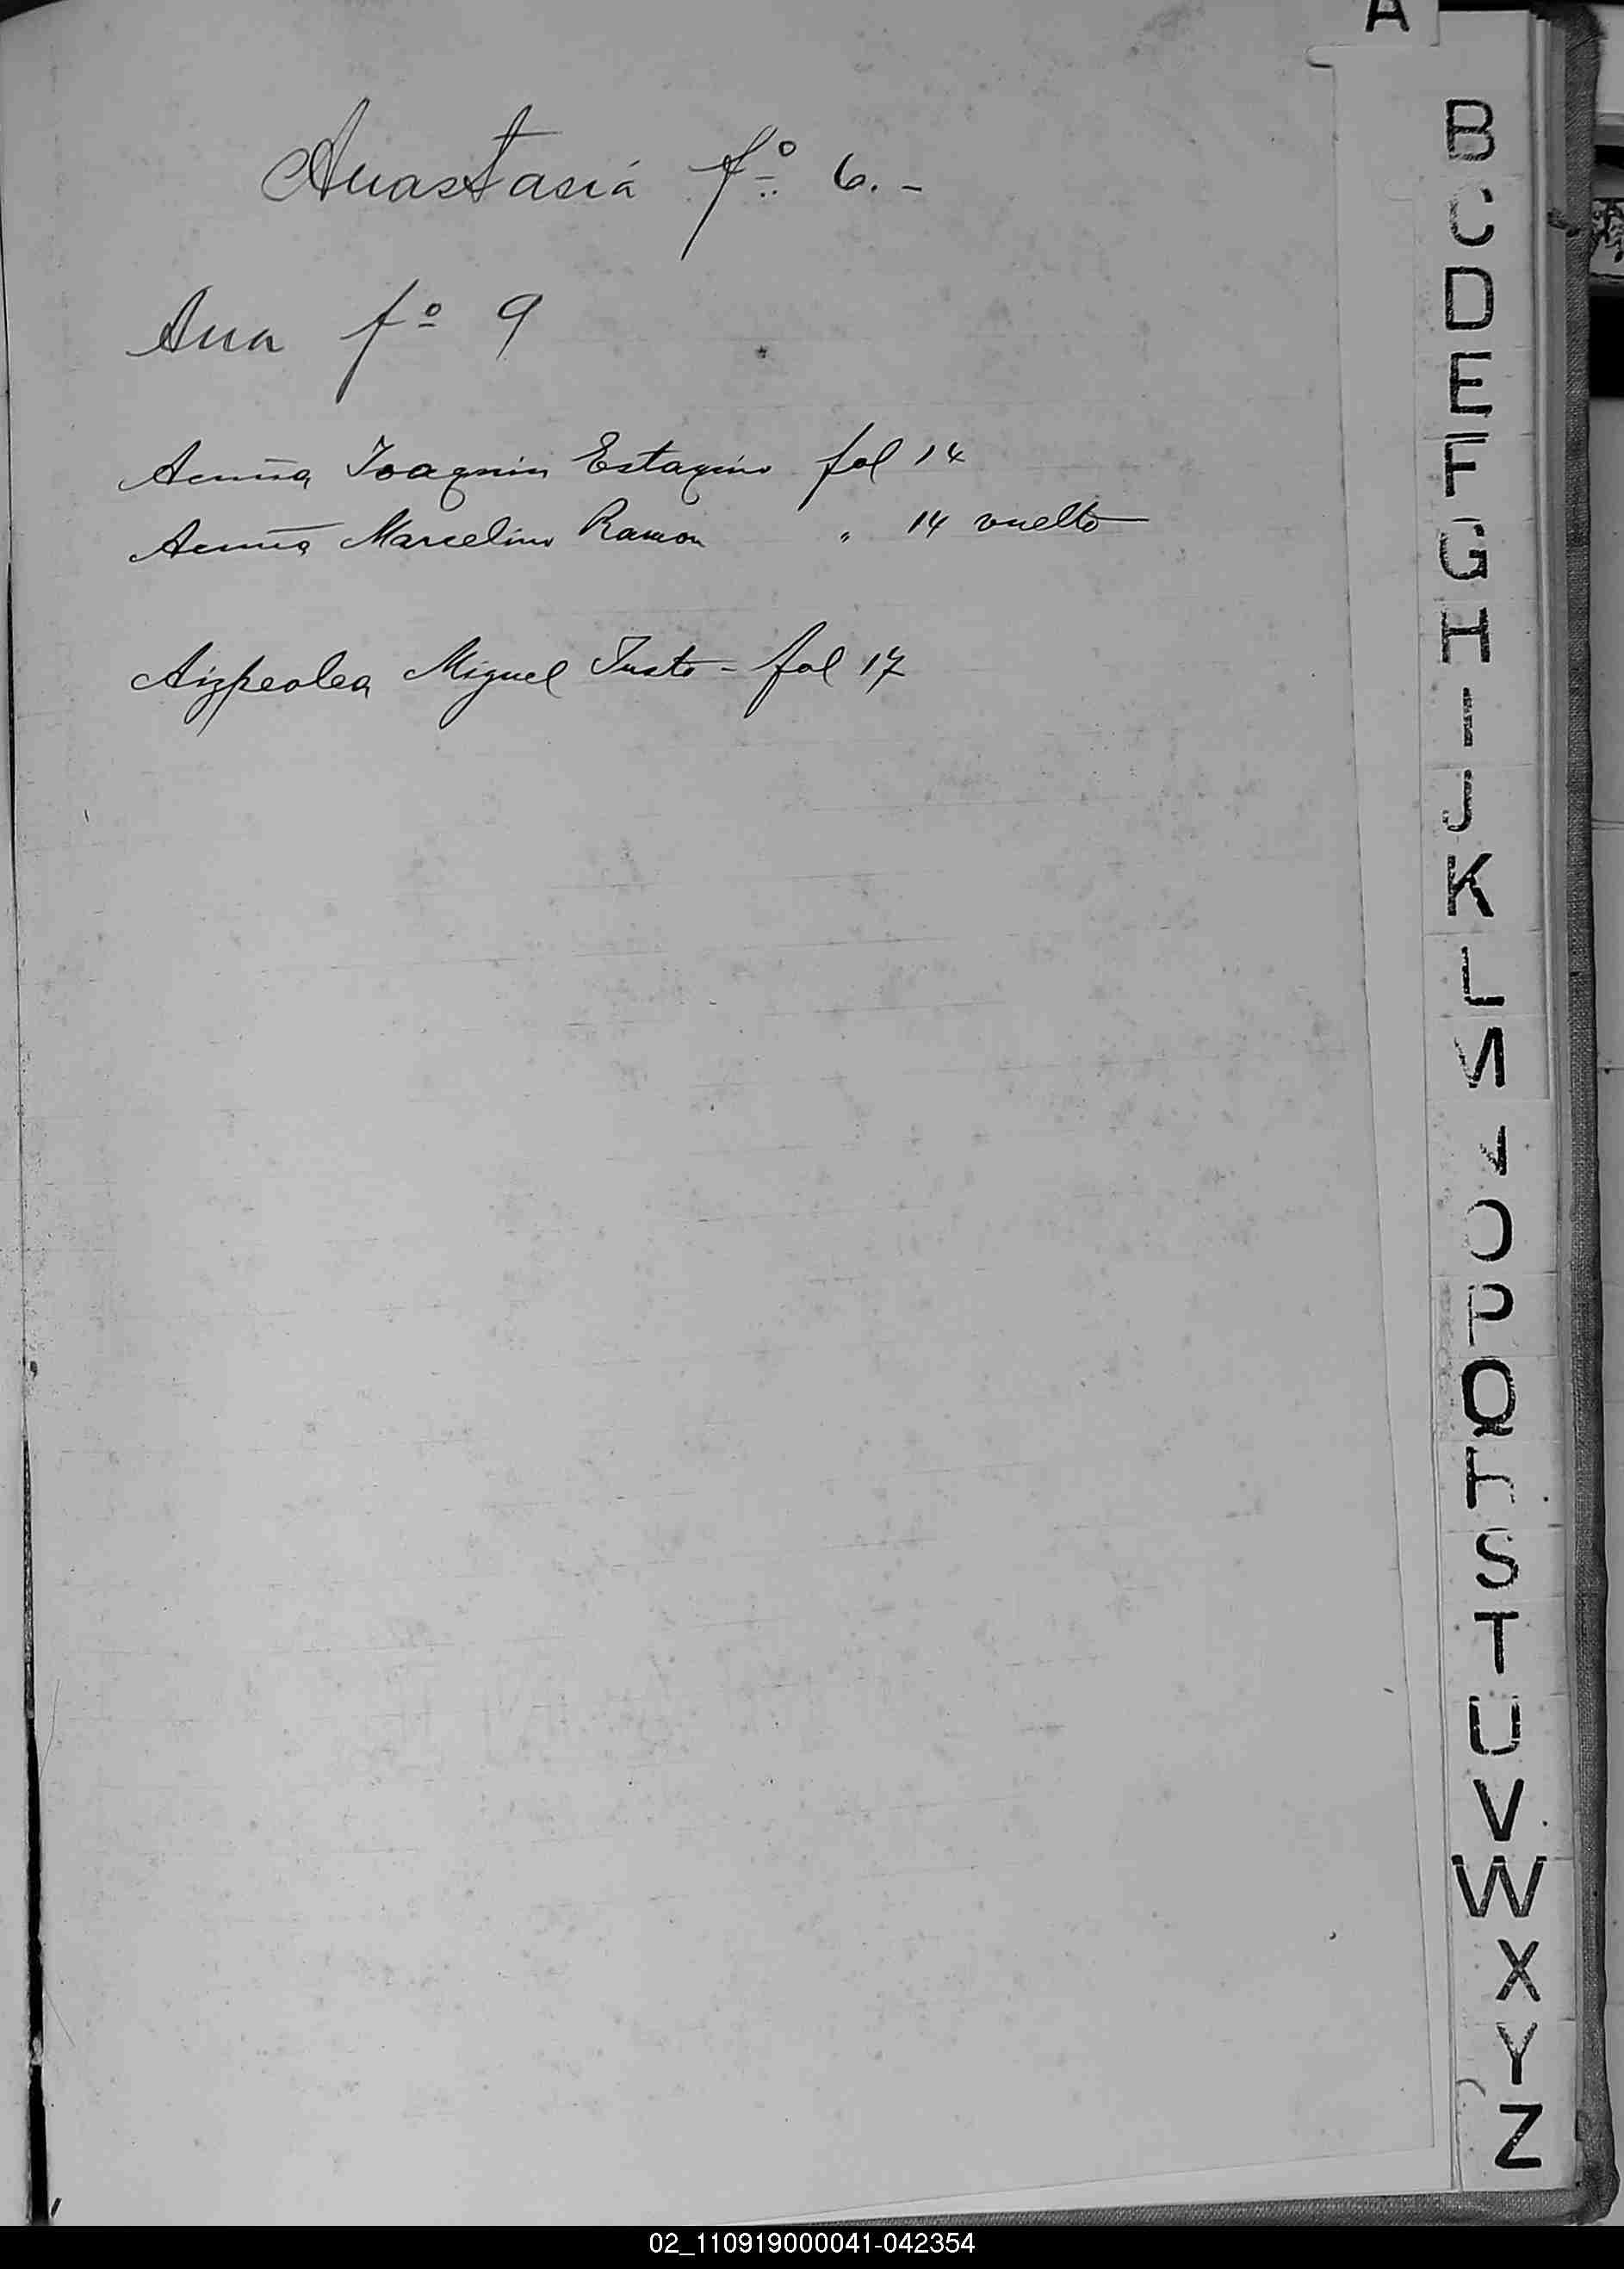 A
Anastasia fº 6.-
Ana fº 9
Acuña Joaquin Estaquio fol 14
Acuña Marcelino Ramon " 14 vuelto
Aizpeolea Miguel Justo - fol 17
B
C
D
E
F
G
H
I
J
K
L
M
N
O
P
Q
R
S
T
U
V
W
X
Y
Z
02_110919000041-042354